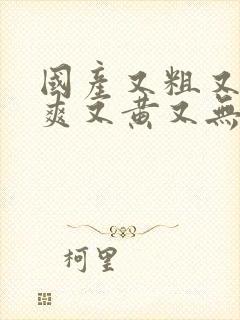 國產又粗又
爽又黃又無
柯里